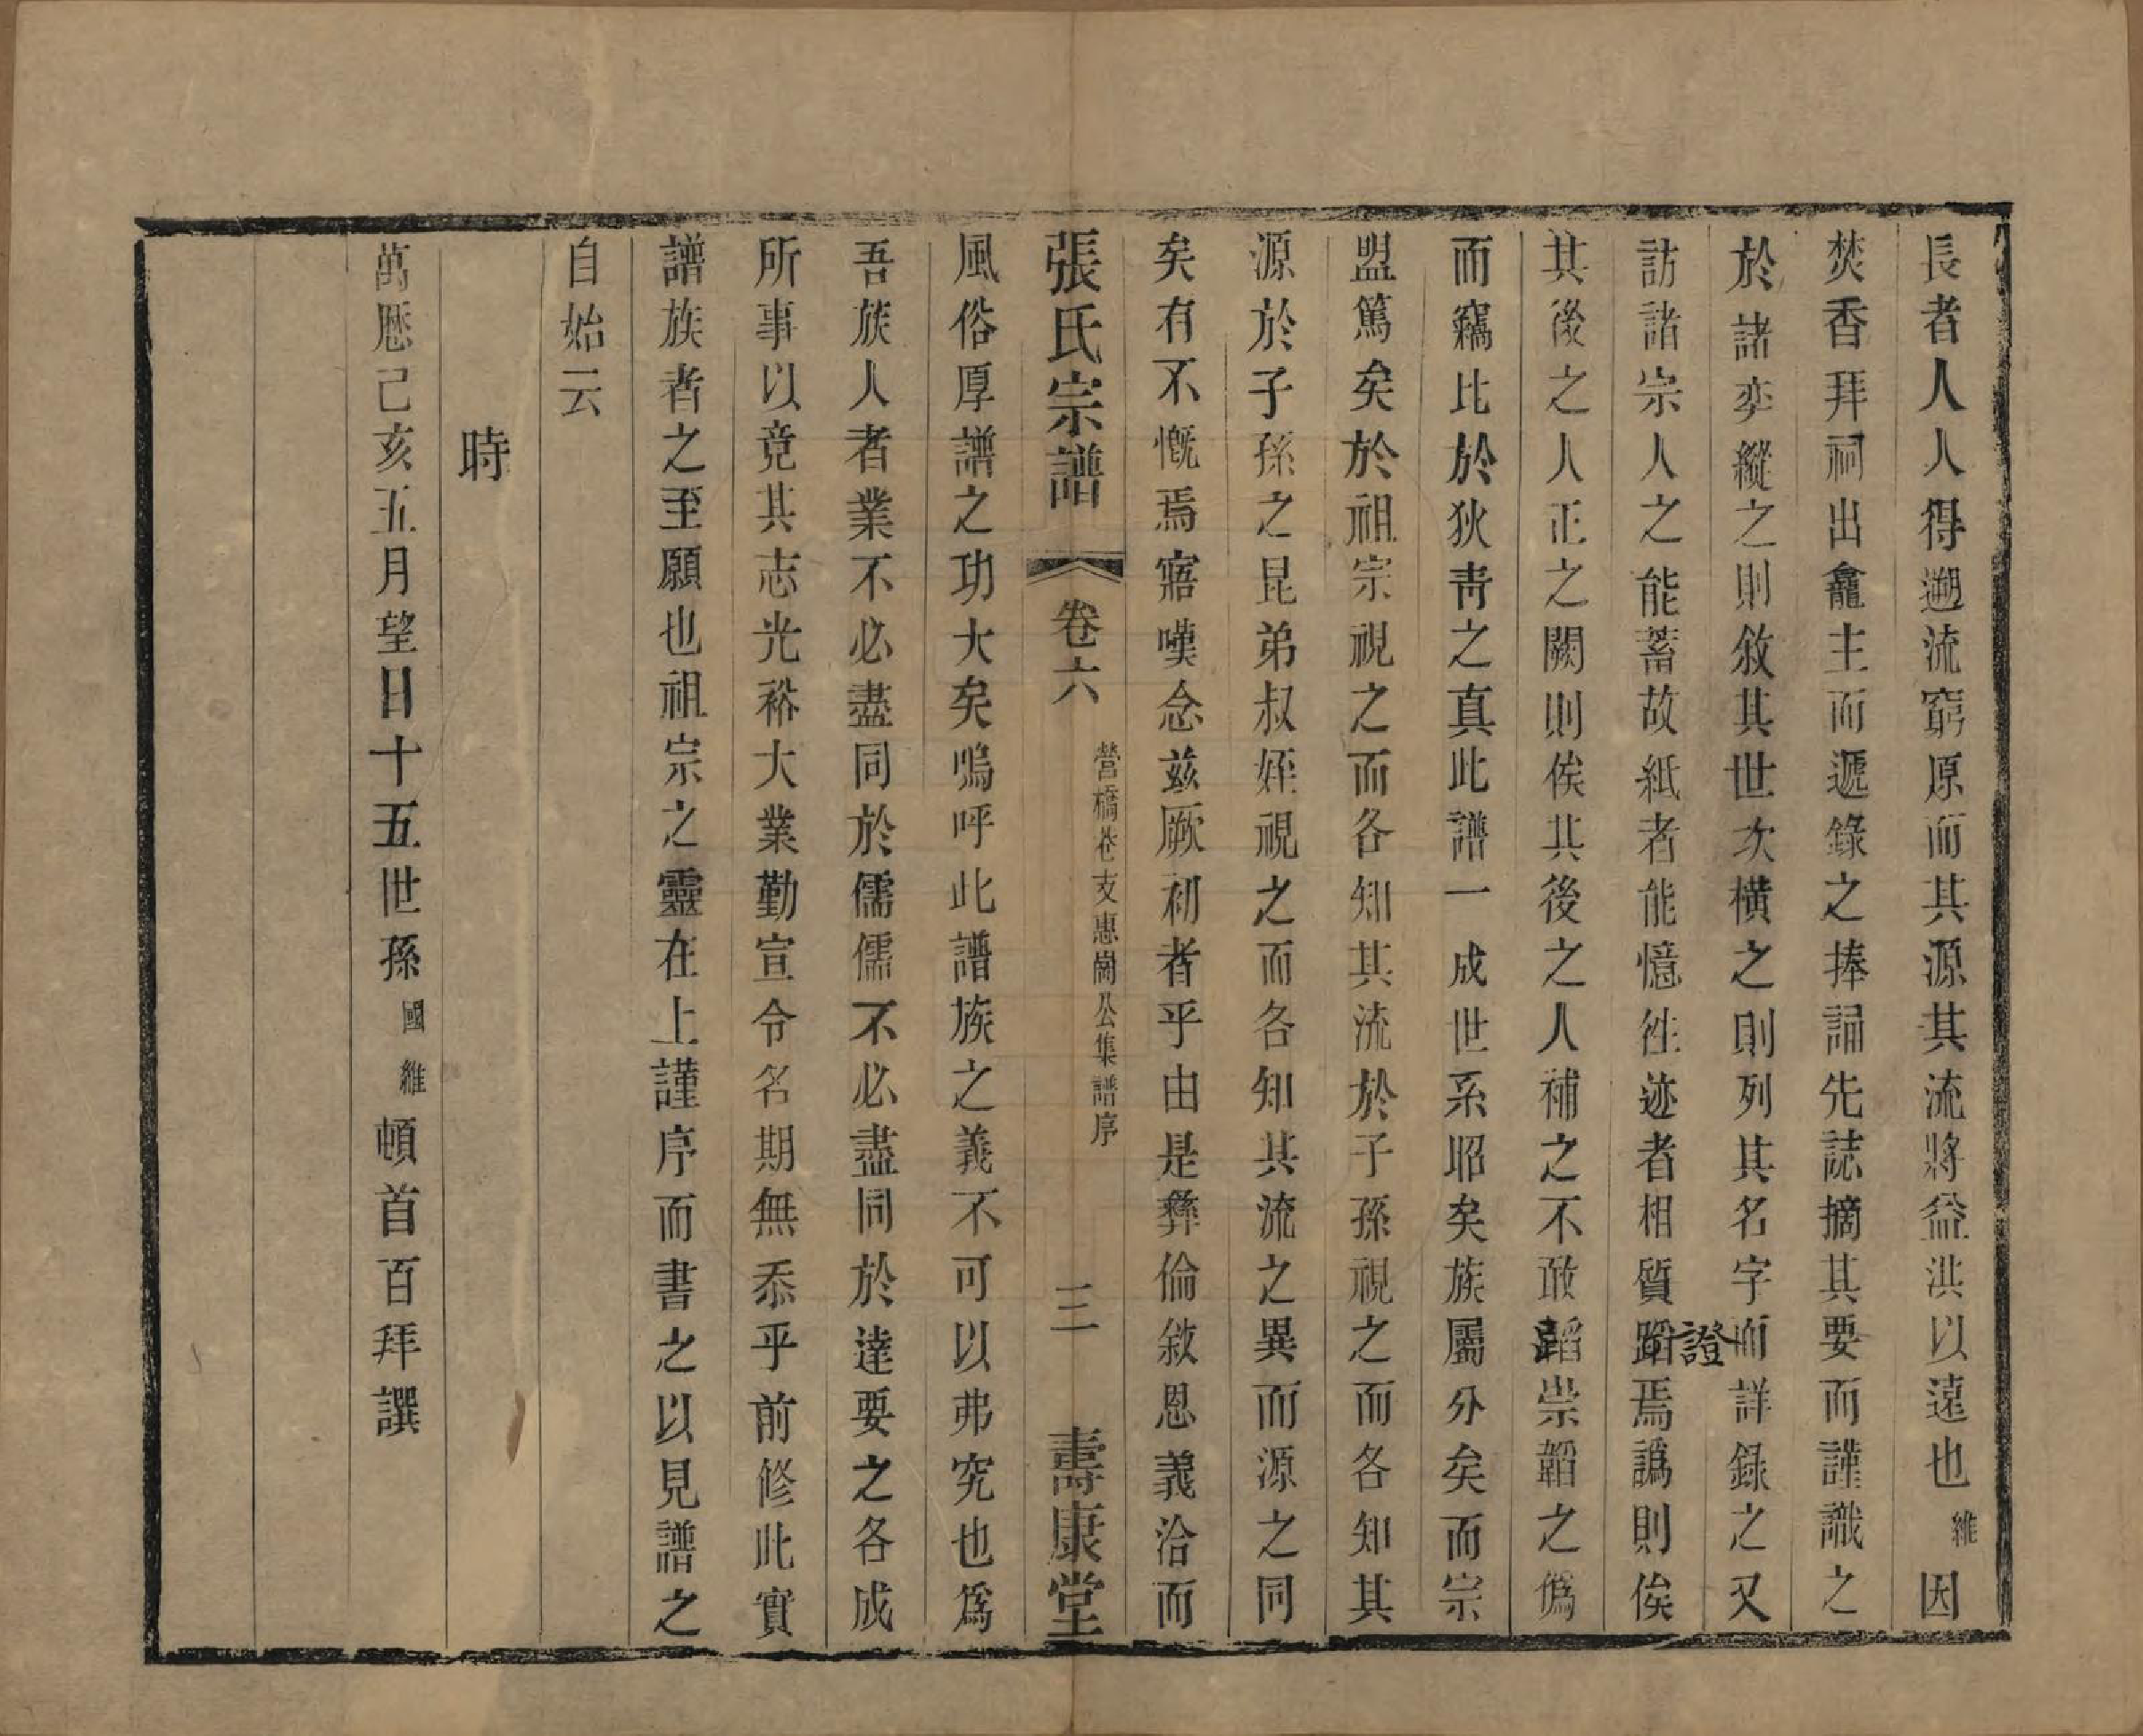 長者人人得遡流窮原而其源其流將益洪以遠也維因
焚香拜祠出龕主而遞錄之捧誦先誌摘其要而謹識之
於諸奕縱之則敘其世次橫之則列其名字而詳錄之又
訪諸宗人之能蓄故紙者能憶徃迹者相質證焉譌則俟
其後之人正之闕則俟其後之人補之不敢蹈崇韜之僞
而竊比於狄靑之真此譜一成世系昭矣族屬分矣而宗
盟篤矣於祖宗視之而各知其流於子孫視之而各知其
源於子孫之昆弟叔姪視之而各知其流之異而源之同
矣有不慨焉寤嘆念兹厥初者乎由是彝倫敘恩義洽而
張氏宗譜 卷六 營橋巷支惠崗公集譜序 三 壽康堂
風俗厚譜之功大矣嗚呼此譜族之義不可以弗究也爲
吾族人者業不必盡同於儒儒不必盡同於達要之各成
所事以竟其志光裕大業勤宣令名期無忝乎前修此實
譜族者之至願也祖宗之靈在上謹序而書之以見譜之
自始云
時
萬厯己亥五月望日十五世孫國維頓首百拜譔